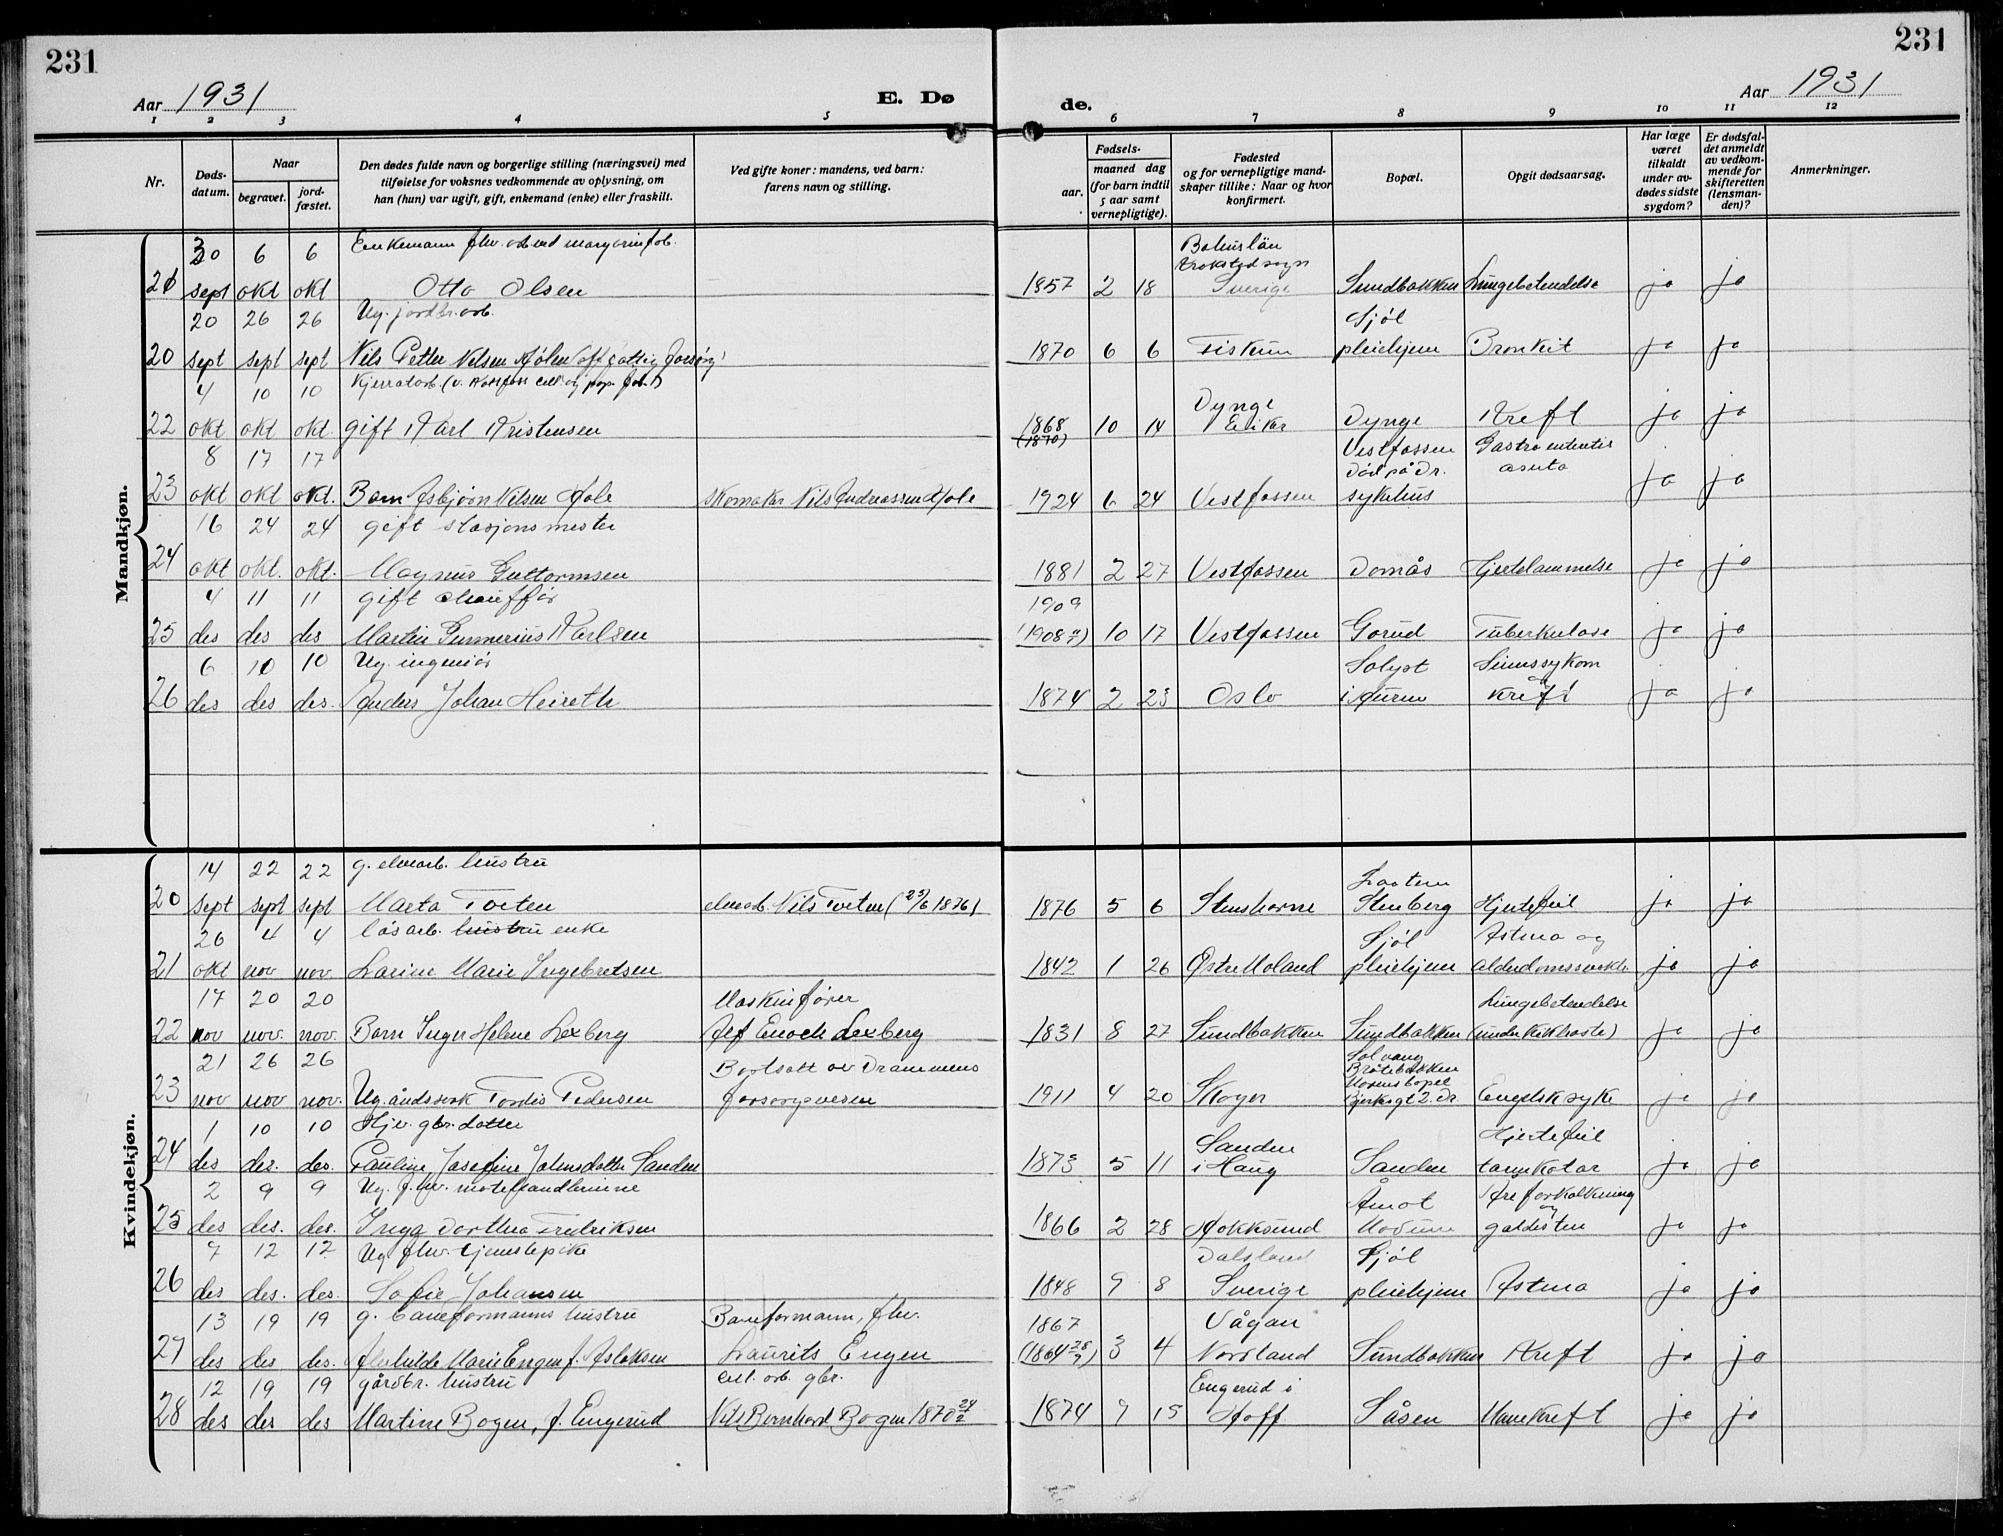 231
231
Aar 1931
E. Dø
de.
Aar 1931
1 2 3 4 5 6 7 8 9 10 11 12
Nr.
Døds-
datum.
Naar
begravet.
jord-
fæstet.
Den dødes fulde navn og borgerlige stilling (næringsvei) med
tilføielse for voksnes vedkommende av oplysning, om
han (hun) var ugift, gift, enkemand (enke) eller fraskilt.
Ved gifte koner: mandens, ved barn:
farens navn og stilling.
Fødsels-
aar.
maaned dag
(for barn indtil
5 aar samt
vernepligtige).
Fødested
og for vernepligtige mand-
skaper tillike: Naar og hvor
konfirmert.
Bopæl.
Opgit dødsaarsag.
Har læge
været
tilkaldt
under av-
dødes sidste
sygdom?
Er dødsfal-
det anmeldt
av vedkom-
mende for
skifteretten
(lensman-
den)?
Anmerkninger.
Mandkjøn.
30 6 6 Enkemann fhv. arb. ved margarinfab. Bahuslän
sogn
21 sept okt okt Otto Olsen 1857 2 18 Sverige Sundbakken Lungebetendelse ja ja
20 26 26 Ug. jordbr.arb. Sjøl
20 sept sept sept Nils Petter Nilsen 1870 6 6 Fiskum pleiehjem Bronkit ja ja
4 10 10
Dynge
22 okt okt okt. gift Karl Kristensen 1868 10 14 Eiker Dynge Kreft ja ja
(1870)
8 17 17 Vestfossen
Død på Dr.
23 okt okt okt. Barn Asbjørn Nilsen Hole skomaker Nils Andreassen Hole 1924 6 24 Vestfossen sykehus ja ja
16 24 24 gift stasjonsmester
24 okt okt. okt. Magnus Guttormsen 1881 2 27 Vestfossen Domås Hjertelammelse ja ja
4 11 11 gift chauffør 1909
25 des des des Martin Gunnerius Karlsen (1908?) 10 17 Vestfossen Gorud Tuberkulose ja ja
6 10 10 Ug. ingeniør Solyst Sinnssykdom
og
26 des des des. Anders Johan Heireth 1874 2 23 Oslo i Hurum kreft ja ja
Kvindekjøn.
14 22 22 g. elvearb. hustru
20 sept sept sept Marta Toeten elvearb. Nils Toeten (25/6 1876) 1876 5 6 Stenshorne Stenberg Hjertefeil ja ja
26 4 4 løsarb. hustru enke Sjøl Astma og
21 okt nov nov. Larine Marie Ingebretsen 1842 1 26 Østre Moland pleiehjem alderdomssvekk. ja ja
17 20 20 Maskinfører Lungebetendelse
22 nov nov. nov. Barn Inger Helene Lexberg Alf Enoch Lexberg 1831 8 27 Sundbakken Sundbakken (under kikhoste) ja ja
21 26 26 Bortsatt av Drammens Solvang
Bråtebakken
23 nov nov nov. Ug. åndssvak Tordis Pedersen forsorgsvesen 1911 4 20 Skoger Bjerksgt 2. Dr. Engelsk syke ja ja
1 10 10 Hjv. gbr. datter Sanden Hjertefeil
24 des des. des. Pauline Josefine Johnsdatter Sanden 1873 5 11 i Haug Sanden tarmkatar ja ja
2 9 9 Ug. fhv. motehandlerinne Åmot Åreforkalkning
og
25 des des. des. Inga Dorthea Fredriksen 1866 2 28 Hokksund Modum galdesten ja ja
7 12 12 Ug. fhv. tjenestepike Dalsland Sjøl
26 des des. des. Sofie Johansen 1848 9 8 Sverige pleiehjem Astma ja ja
13 19 19 g. baneformanns hustru Baneformann, fhv. 1867 Vågan
27 des des des. Alvhilde Marie Engen f. Aslaksen Laurits Engen (1864 28/9) 3 4 Nordland Sundbakken Kreft ja ja
12 19 19 gårdbr. hustru cell. arb. gbr. Engerud i
28 des des des Martine Bogen, f. Engerud Nils Bernhard Bogen 1870 24/2 1874 9 15 Hoff Såsen Mavekreft ja ja